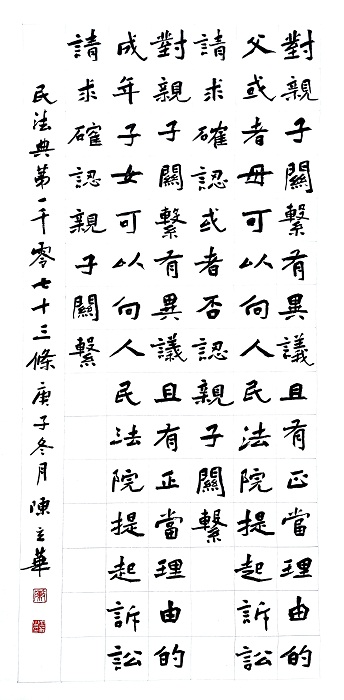 對親子關繫有異議且有正當理由的
父或者母可以向人民法院提起訴訟
請求確認或者否認親子關繫
對親子關繫有異議且有正當理由的
成年子女可以向人民法院提起訴訟
請求確認親子關繫
民法典第一千零七十三條庚子冬月陳立華